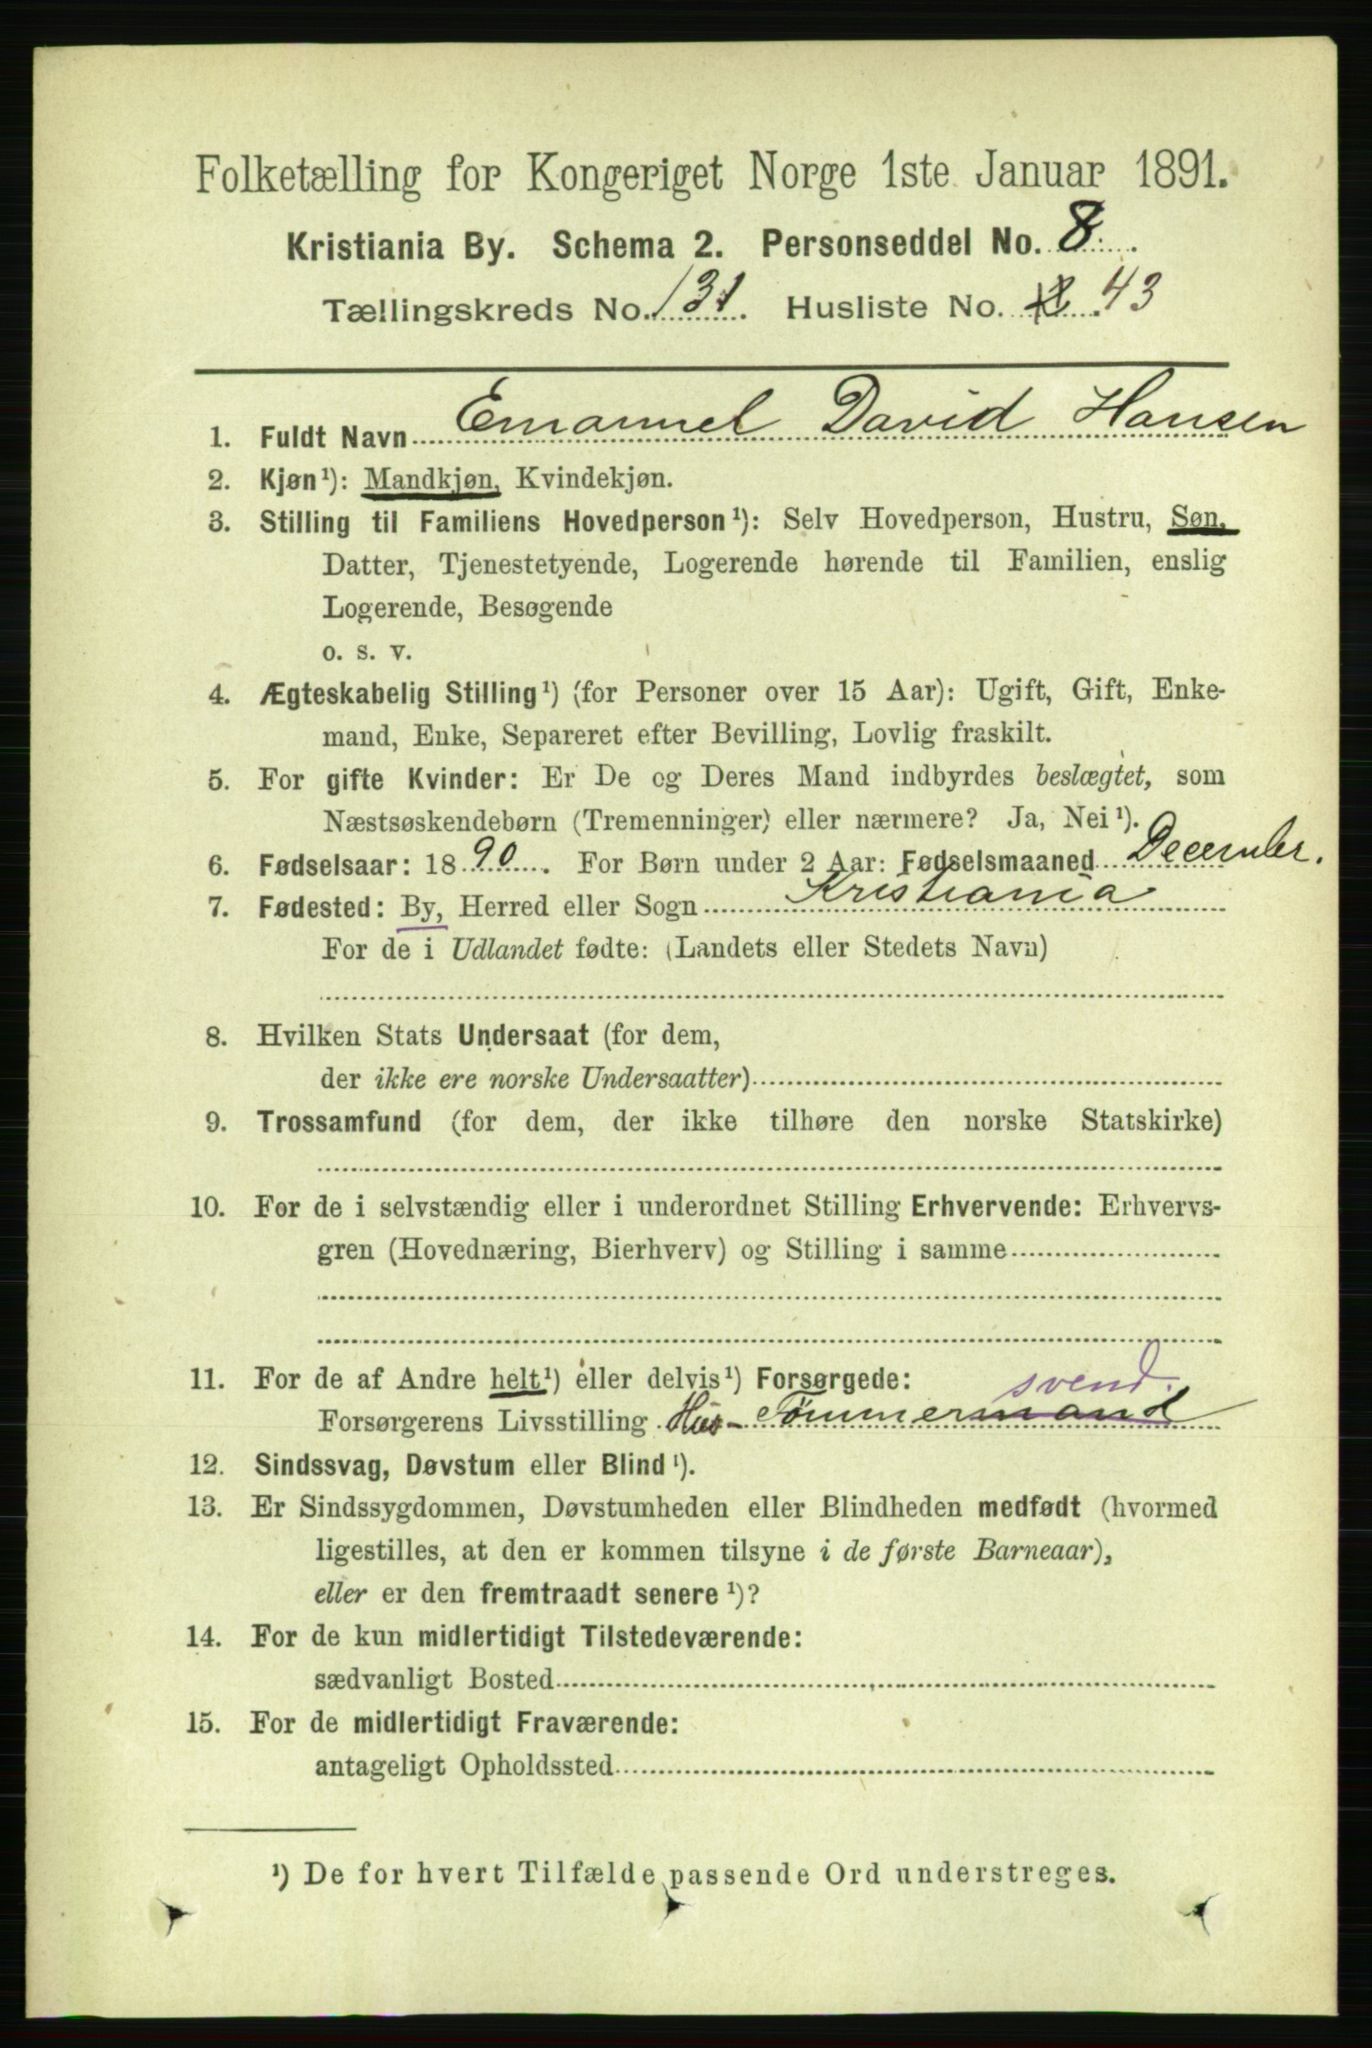 Folketælling for Kongeriget Norge 1ste Januar 1891.
Kristiania By. Schema 2. Personseddel No. 8.
Tællingskreds No. 131. Husliste No. 43
1. Fuldt Navn Emanuel David Hansen
2. Kjøn¹): Mandkjøn, Kvindekjøn.
3. Stilling til Familiens Hovedperson¹): Selv Hovedperson, Hustru, Søn,
Datter, Tjenestetyende, Logerende hørende til Familien, enslig
Logerende, Besøgende
o. s. v.
4. Ægteskabelig Stilling¹) (for Personer over 15 Aar): Ugift, Gift, Enke-
mand, Enke, Separeret efter Bevilling, Lovlig fraskilt.
5. For gifte Kvinder: Er De og Deres Mand indbyrdes beslægtet, som
Næstsøskendebørn (Tremenninger) eller nærmere? Ja, Nei¹).
6. Fødselsaar: 1890. For Børn under 2 Aar: Fødselsmaaned December.
7. Fødested: By, Herred eller Sogn Kristiania
For de i Udlandet fødte: (Landets eller Stedets Navn)
8. Hvilken Stats Undersaat (for dem,
der ikke ere norske Undersaatter)
9. Trossamfund (for dem, der ikke tilhøre den norske Statskirke)
10. For de i selvstændig eller i underordnet Stilling Erhvervende: Erhvervs-
gren (Hovednæring, Bierhverv) og Stilling i samme
11. For de af Andre helt¹) eller delvis¹) Forsørgede:
svend.
Forsørgerens Livsstilling Hus-Tømmermand
12. Sindssvag, Døvstum eller Blind¹).
13. Er Sindssygdommen, Døvstumheden eller Blindheden medfødt (hvormed
ligestilles, at den er kommen tilsyne i de første Barneaar),
eller er den fremtraadt senere¹)?
14. For de kun midlertidigt Tilstedeværende:
sædvanligt Bosted
15. For de midlertidigt Fraværende:
antageligt Opholdssted
¹) De for hvert Tilfælde passende Ord understreges.